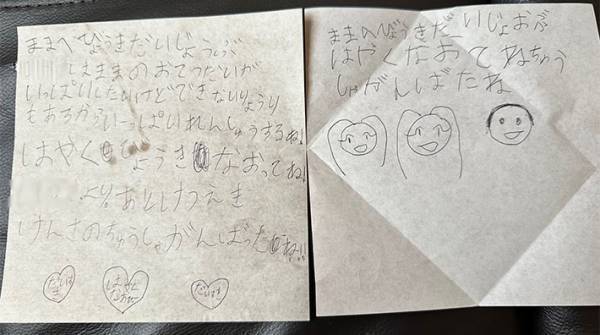 ままへびょうきだいじょうぶ
はままのおてつだいが
いっぱいしたいけどできないりょうり
もあるからいーっぱいれんしゅうするね!
はやくびょうきなおってね!
より
けんさのちゅうしゃがんばったね!!
だいすき
はやくなおって
だいすき
ままのびょうきだいじょおぶ
はやくなおてねちゅう
しゃがんばたね